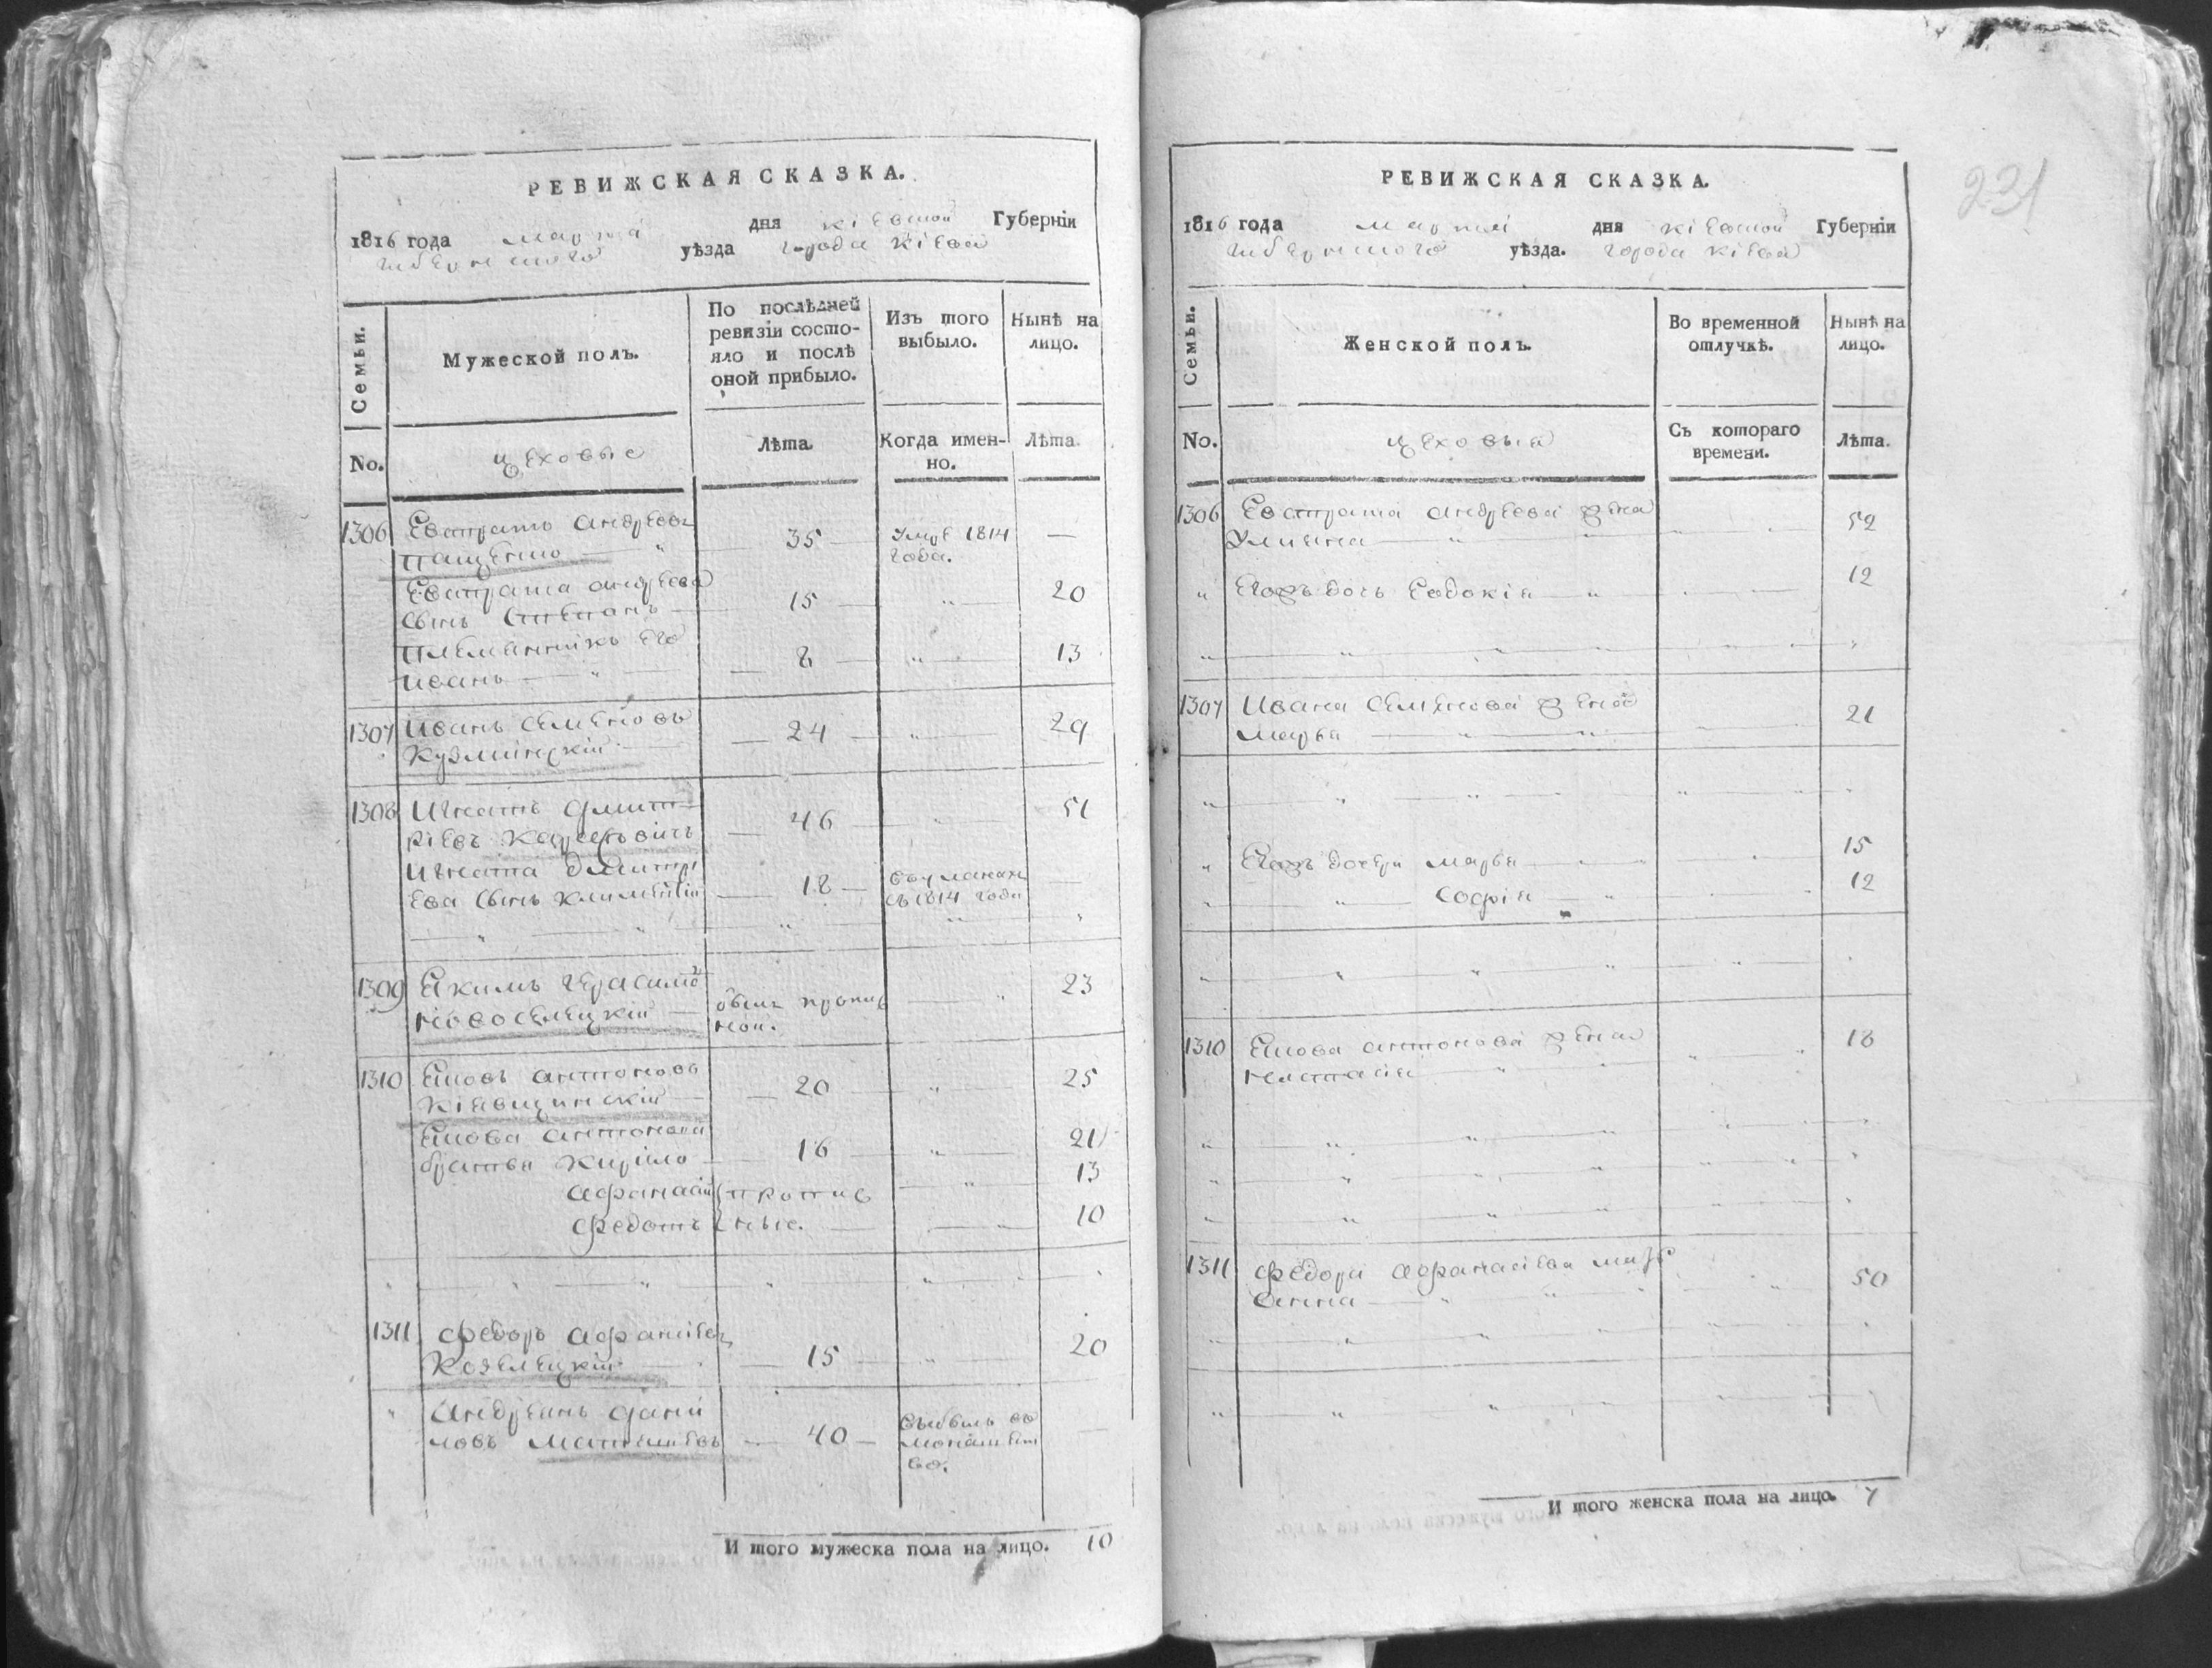 231
РЕВИЖСКАЯ СКАЗКА.
1816 года марта дня кіевской Губерніи
губернского уѣзда города кіева
Семьи.
Мужеской полъ.
По послѣдней ревизіи состо-
яло и послѣ
оной прибыло.
Изъ того
выбыло.
Нынѣ на
лицо.
No.
цеховые
Лѣта.
Когда имен-
но.
Лѣта.
1306 Евстратъ андреевъ
пащенко 35 Умре 1814 —
года.
Евстрата андреева
сынъ Степанъ 15 " 20
племянникъ его
иванъ 8 " 13
1307 Иванъ Семеновъ 24 " 29
Кузминскій
1308 Игнатъ дмит
ріевъ 46 " 51
Игната дмитрі
ева сынъ климентій 18 —
съ 1814 года
1309 Екимъ герасимо
новоселецкій 23
1310 Яковъ антоновъ 20 " 25
Яковa антонова
братья Кирило 16 " 21
афанасій пропис " 13
федотъ ные. " 10
1311 федоръ афанасіевъ
Козелецкій 15 " 20
" андреянъ дани
ловъ 40 выбылъ въ —
монашест
во.
И того мужеска пола на лицо. 10
РЕВИЖСКАЯ СКАЗКА.
1816 года марта дня кіевской Губерніи
губернского уѣзда. города кіева
Семьи.
Женской полъ.
Во временной
отлучкѣ.
Нынѣ на
лицо.
No.
цеховыя
Съ котораго
времени.
Лѣта.
1306 Евстрата андреева жена
Улияна 52
" Егожъ дочь Евдокія 12
1307 Ивана Семенова жена
марья 21
" Егожъ дочери марья 15
" софія 12
1310 Якова антонова жена 18
настасія
1311 федора афанасіева мать
анна 50
И того женска пола на лицо. 7